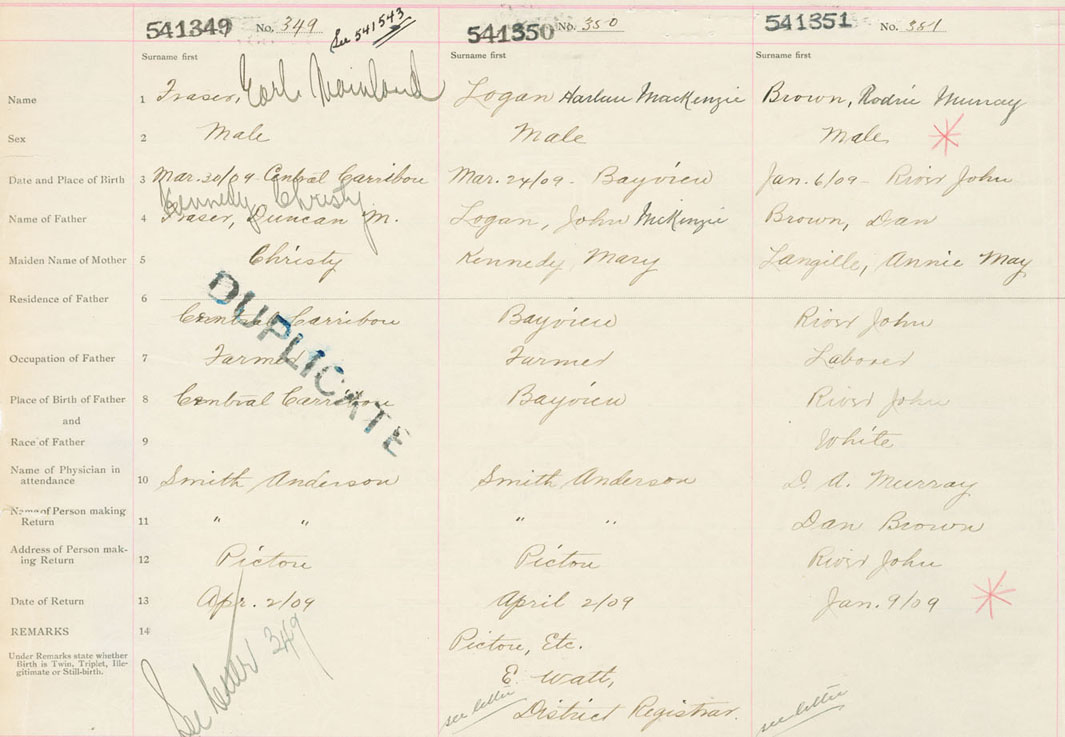 541349 No. 349 See 541543 541350 No. 350 541351 No. 351
Surname first Surname first Surname first
Name 1 Fraser, Earl Mainland Logan Harlan MacKenzie Brown, Rodrie Murray
Sex 2 Male Male Male
Date and Place of Birth 3 Mar. 30/09 - Central Carribou Mar. 24/09 - Bayview Jan. 6/09 - River John
Kennedy Christy
Name of Father 4 Fraser, Duncan M. Logan, John McKenzie Brown, Dan
Maiden Name of Mother 5 Christy Kennedy Mary Langille, Annie May
Residence of Father 6 Central Carribou Bayview River John
DUPLICATE
Occupation of Father 7 Farmer Farmer Laborer
Place of Birth of Father 8 Central Carribou Bayview River John
and
Race of Father 9 White
Name of Physician in
attendance 10 Smith Anderson Smith Anderson D. A. Murray
Name of Person making
Return 11 " " " " Dan Brown
Address of Person mak-
ing Return 12 Pictou Pictou River John
Date of Return 13 Apr. 2/09 April 2/09 Jan. 9/09
REMARKS 14 Pictou, Etc.
Under Remarks state whether
Birth is Twin, Triplet, Ille-
gitimate or Still-birth.
See letter 349
E. Watt,
see letter District Registrar. see letter